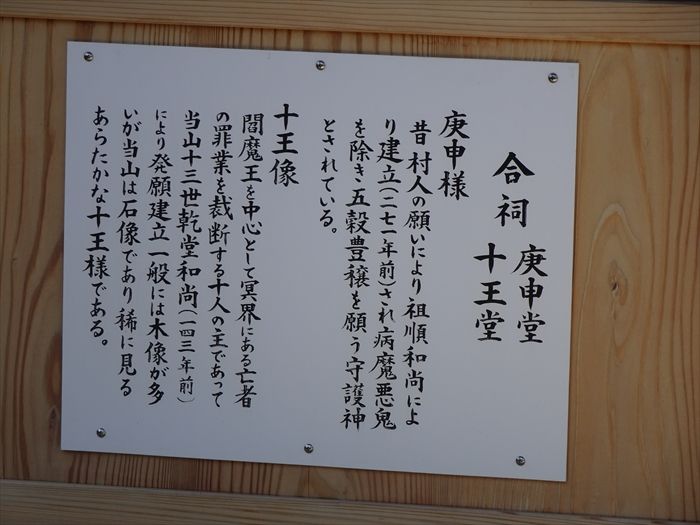 合祠
庚申堂
十王堂
庚申様
昔村人の願いにより祖順和尚によ
り建立(二七一年前)され病魔悪鬼
を除き五穀豊穣を願う守護神
とされている。
十王像
閻魔王を中心として冥界にある亡者
の罪業を裁断する十人の主であって
当山十三世乾堂和尚(一四三年前)
により発願建立一般には木像が多
いが当山は石像であり稀に見る
あらたかな十王様である。